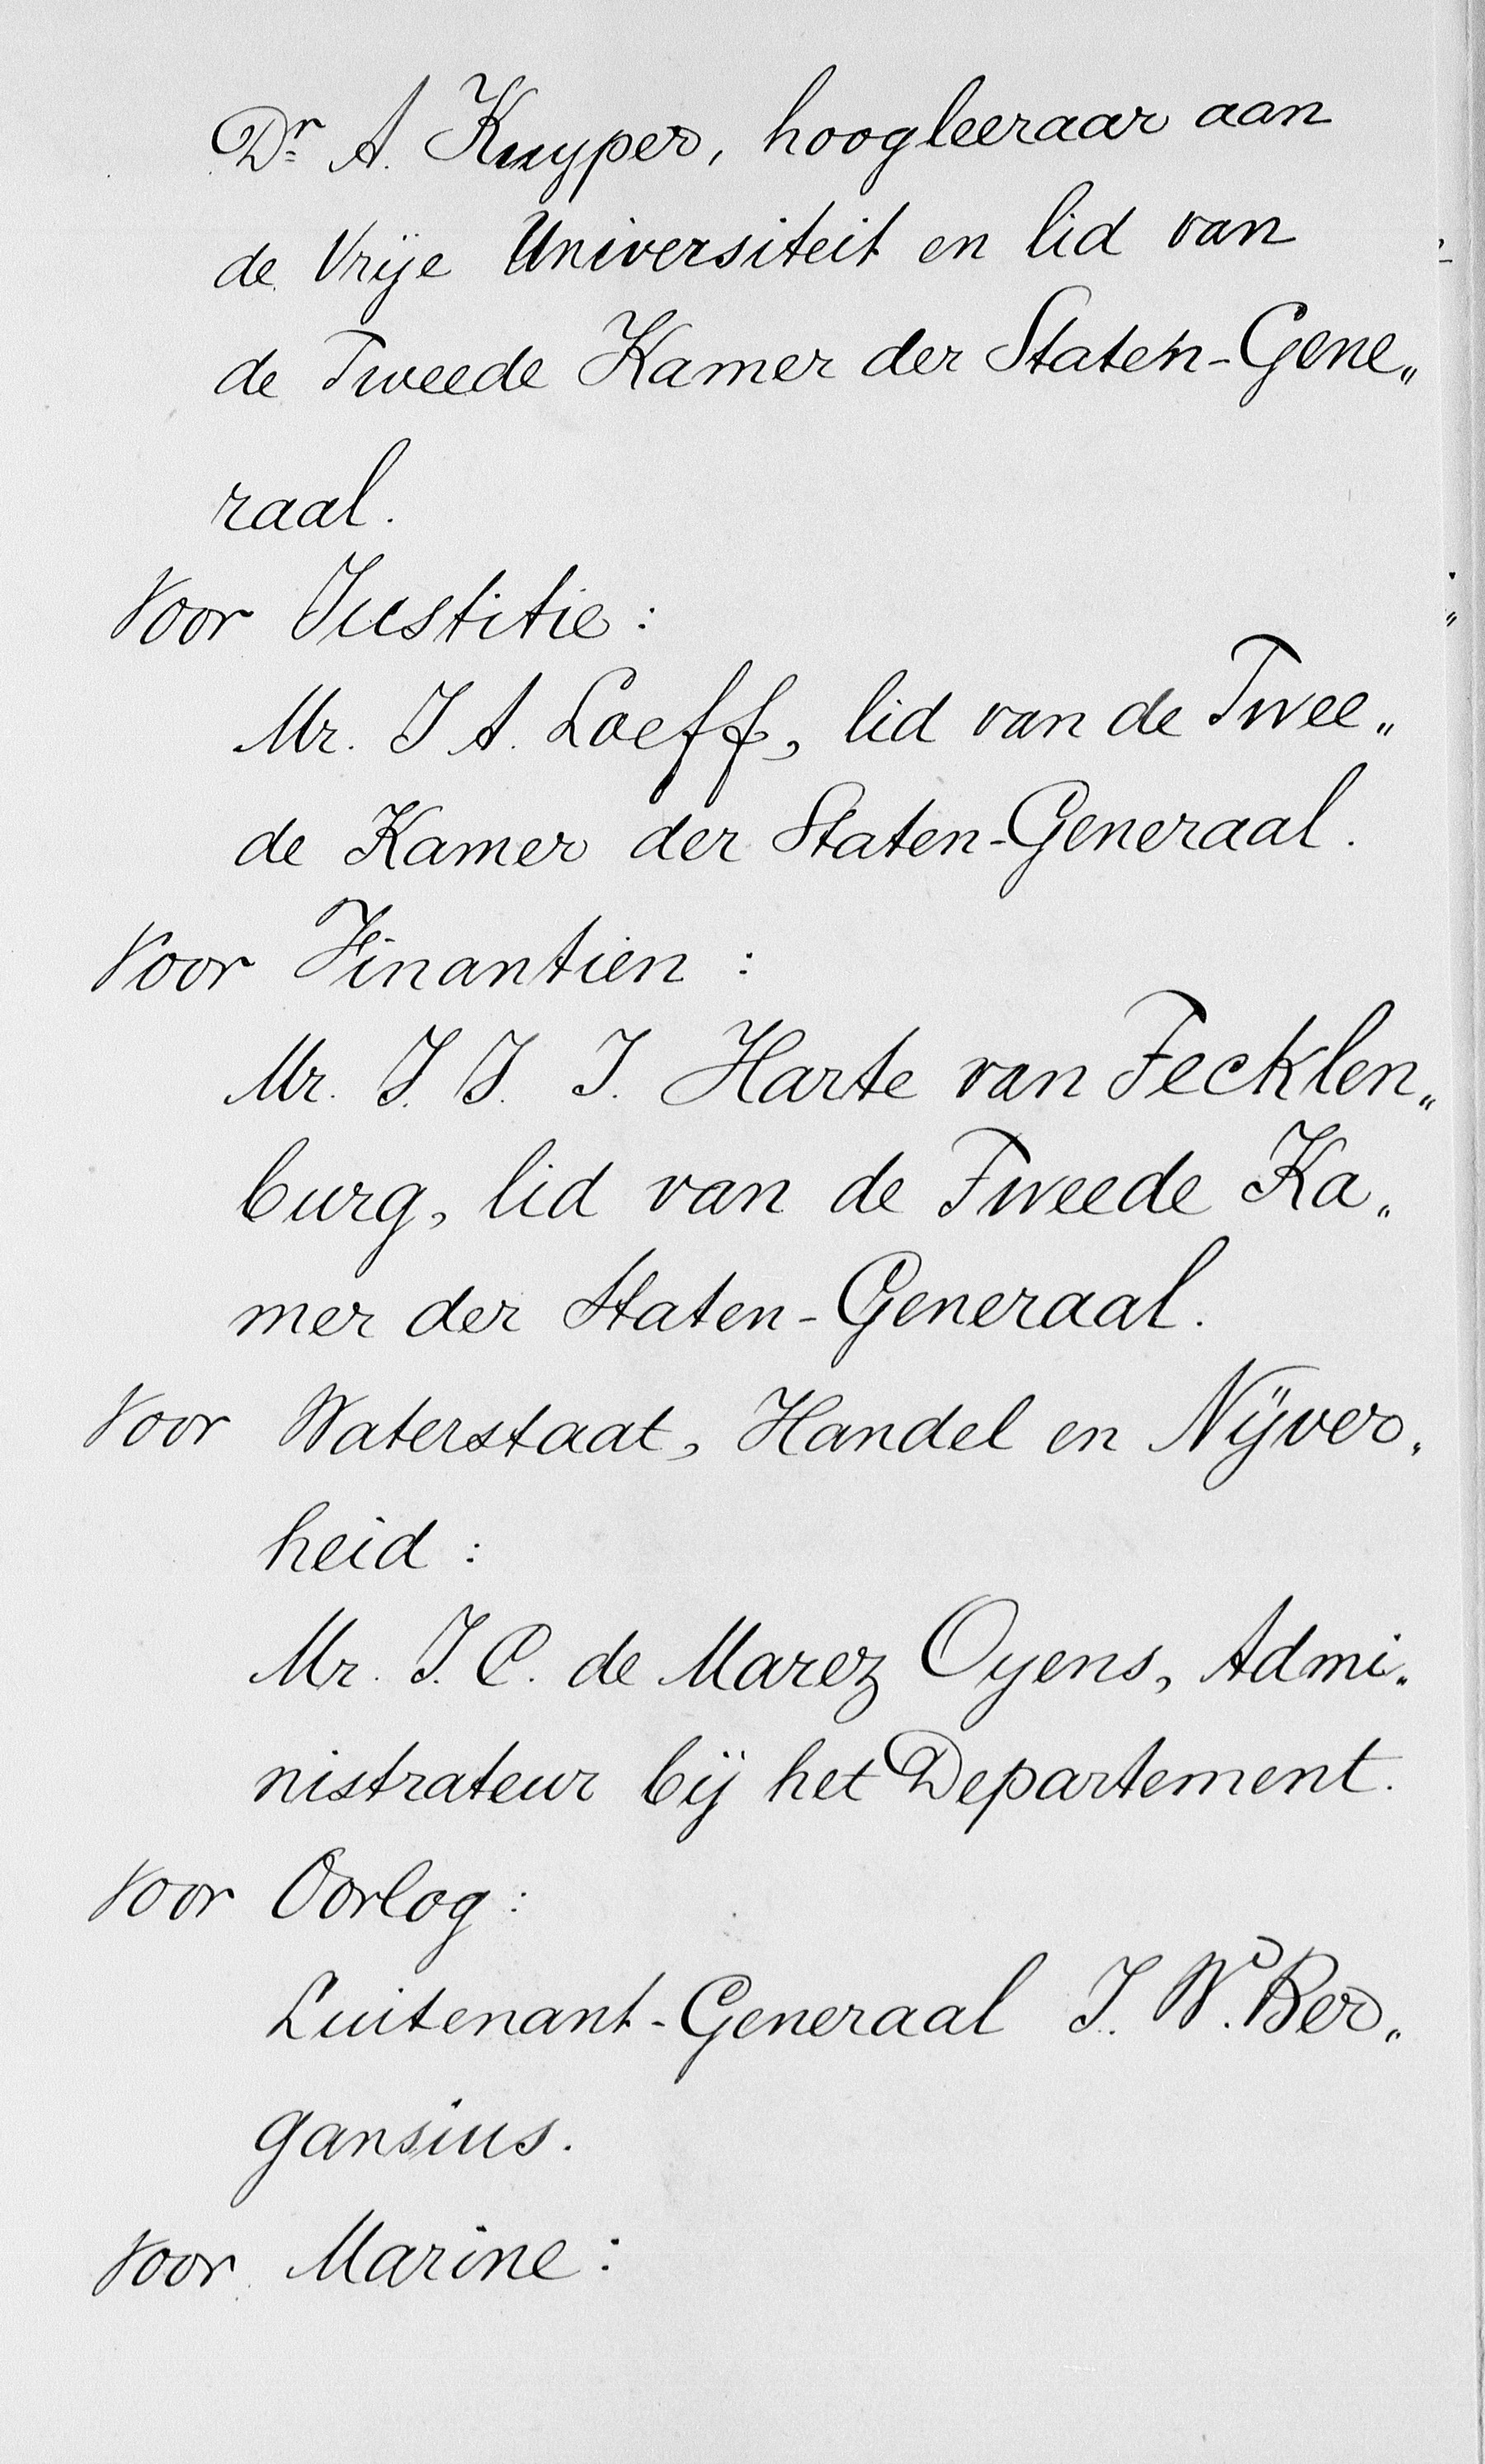 Dr A. Kuyper, hoogleeraar aan
de Vrije Universiteit en lid van
de Tweede Kamer der Staten-Gene„
raal.
Voor Justitie:
Mr. J A. Loeff, lid van de Twee„
de Kamer der Staten-Generaal.
Voor Finantien:
Mr. J. J. I. Harte van Tecklen„
burg, lid van de Tweede Ka„
mer der Staten-Generaal.
Voor Waterstaat, Handel en Nijver„
heid:
Mr. J. C. de Marez Oyens, Admi„
nistrateur bij het Departement.
Voor Oorlog:
Luitenant-Generaal J. W. Ber„
gansius.
Voor Marine: